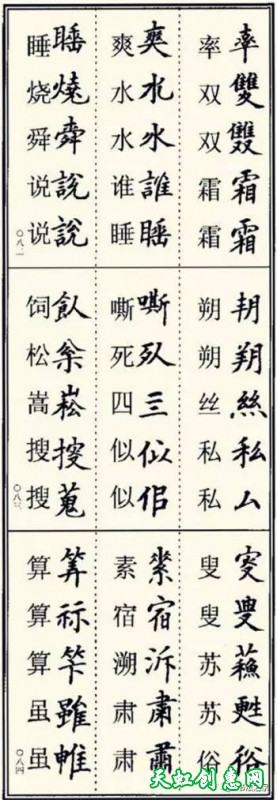 率雙雙霜霜
率双双霜霜
爽水水誰睡
爽水水谁睡
睡燒舜説説
睡烧舜说说
〇八二
朔絲私厶
朔朔丝私私
嘶亖似佀
嘶死四似似
飤枀崧搜蒐
饲松嵩搜搜
〇八三
叜叟蘇甦俗
叟叟苏苏俗
素宿泝肅肅
素宿溯肃肃
筭祘笇雖
算算算虽虽
〇八四
天虹创惠网